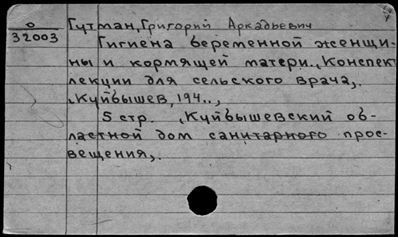 о
32003
Гутман, Григорий Аркадьевич
Гигиена беременной женщи-
ны и кормящей матери., Конспект
лекции для сельского врача,.
,Куйбышев, 194..,
5 стр. ,Куйбышевский об-
ластной дом санитарного прос-
вещения,.